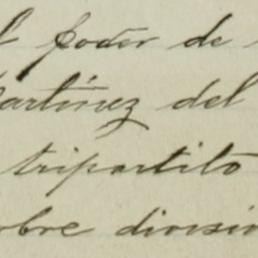 el poder de
Martínez del
tripartito
sobre división